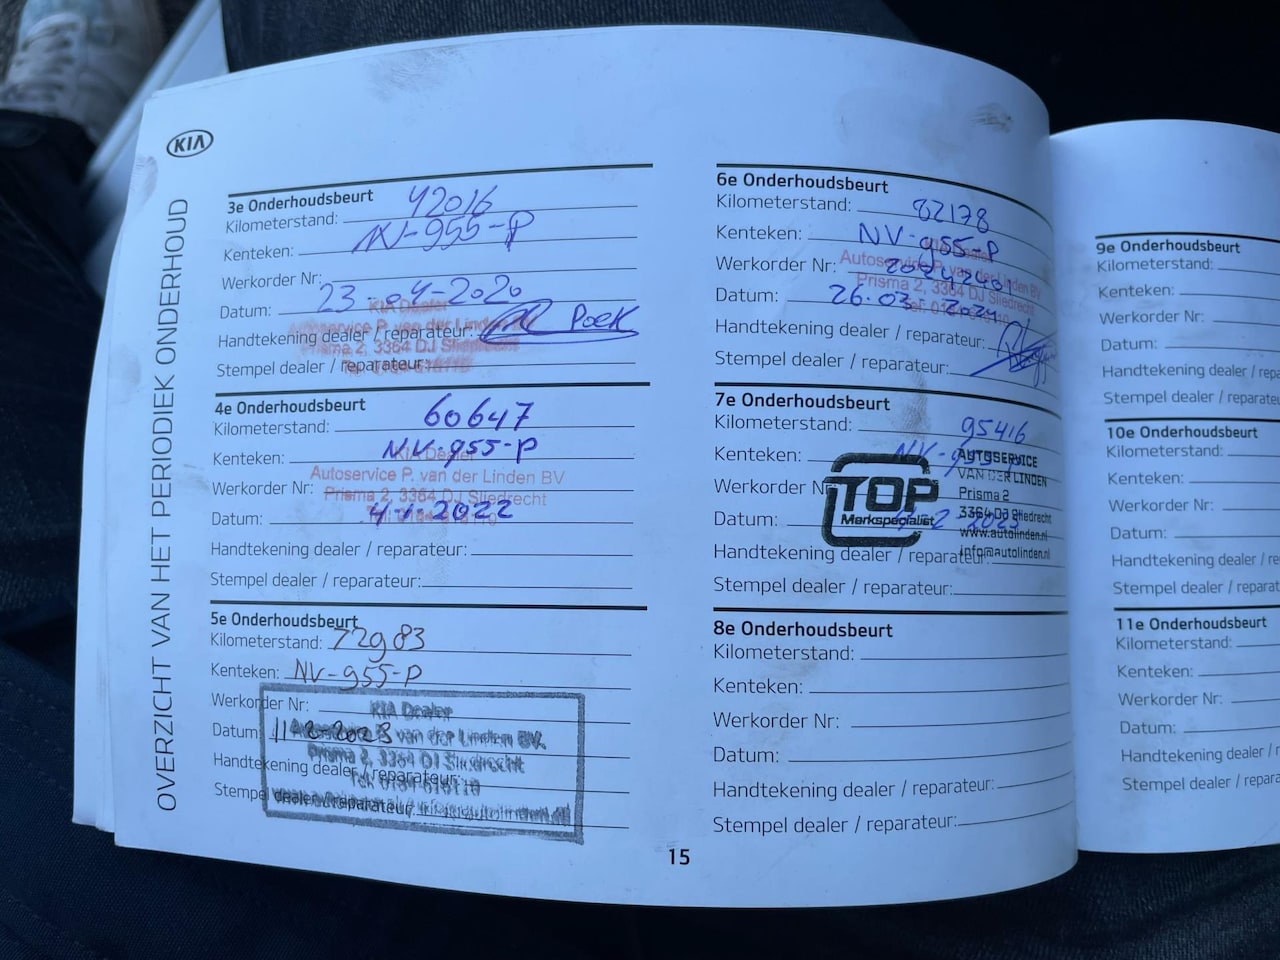 KIA
OVERZICHT VAN HET PERIODIEK ONDERHOUD
3e Onderhoudsbeurt
Kilometerstand: 42016
Kenteken: NV-955-P
Werkorder Nr:
Datum: 23-04-2020
Handtekening dealer / reparateur:
Stempel dealer / reparateur:
KIA Dealer
Autoservice P. van der Linden
Prisma 2, 3364 DJ Sliedrecht
4e Onderhoudsbeurt
Kilometerstand: 60647
Kenteken: NV-955-P
Werkorder Nr:
Datum: 4-1-2022
Handtekening dealer / reparateur:
Stempel dealer / reparateur:
KIA Dealer
Autoservice P. van der Linden BV
Prisma 2, 3364 DJ Sliedrecht
5e Onderhoudsbeurt
Kilometerstand: 72983
Kenteken: NV-955-P
Werkorder Nr:
Datum: 11-2-2023
Handtekening dealer / reparateur:
Stempel dealer / reparateur:
KIA Dealer
Autoservice P. van der Linden BV.
Prisma 2, 3364 DJ Sliedrecht
15
6e Onderhoudsbeurt
Kilometerstand: 82178
Kenteken: NV-955-P
Werkorder Nr:
Datum: 26-03-2024
Handtekening dealer / reparateur:
Stempel dealer / reparateur:
Autoservice P. van der Linden BV
Prisma 2, 3364 DJ Sliedrecht
7e Onderhoudsbeurt
Kilometerstand: 95416
Kenteken: NV-955-P
Werkorder Nr
Datum:
Handtekening dealer / reparateur:
Stempel dealer / reparateur:
TOP
Merkspecialist
AUTOSERVICE
VAN DER LINDEN
Prisma 2
3364 DJ Sliedrecht
www.autolinden.nl
info@autolinden.nl
8e Onderhoudsbeurt
Kilometerstand:
Kenteken:
Werkorder Nr:
Datum:
Handtekening dealer / reparateur:
Stempel dealer / reparateur:
9e Onderhoudsbeurt
Kilometerstand:
Kenteken:
Werkorder Nr:
Datum:
Handtekening dealer / repa
Stempel dealer / reparateu
10e Onderhoudsbeurt
Kilometerstand:
Kenteken:
Werkorder Nr:
Datum:
Handtekening dealer / re
Stempel dealer / reparat
11e Onderhoudsbeurt
Kilometerstand:
Kenteken:
Werkorder Nr:
Datum:
Handtekening dealer / r
Stempel dealer / repara